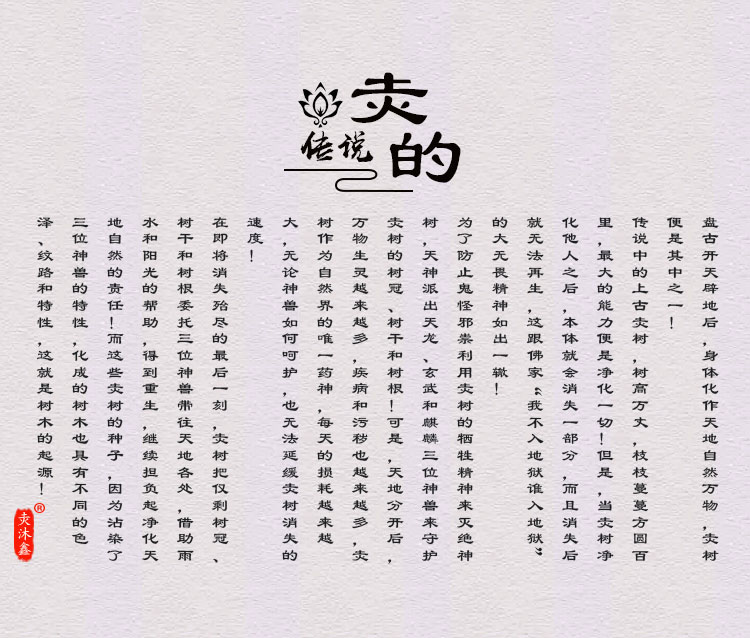 灻的
传说
盘古开天辟地后，身体化作天地自然万物，灻树
便是其中之一！
传说中的上古灻树，树高万丈，枝枝蔓蔓方圆百
里，最大的能力便是净化一切！但是，当灻树净
化他人之后，本体就会消失一部分，而且消失后
就无法再生，这跟佛家“我不入地狱谁入地狱”
的大无畏精神如出一辙！
为了防止鬼怪邪祟利用灻树的牺牲精神来灭绝神
树，天神派出天龙、玄武和麒麟三位神兽来守护
灻树的树冠、树干和树根！可是，天地分开后，
万物生灵越来越多，疾病和污秽也越来越多，灻
树作为自然界的唯一药神，每天的损耗越来越
大，无论神兽如何呵护，也无法延缓灻树消失的
速度！
在即将消失殆尽的最后一刻，灻树把仅剩树冠、
树干和树根委托三位神兽带往天地各处，借助雨
水和阳光的帮助，得到重生，继续担负起净化天
地自然的责任！而这些灻树的种子，因为沾染了
三位神兽的特性，化成的树木也具有不同的色
泽、纹路和特性，这就是树木的起源！
灻沐鑫®